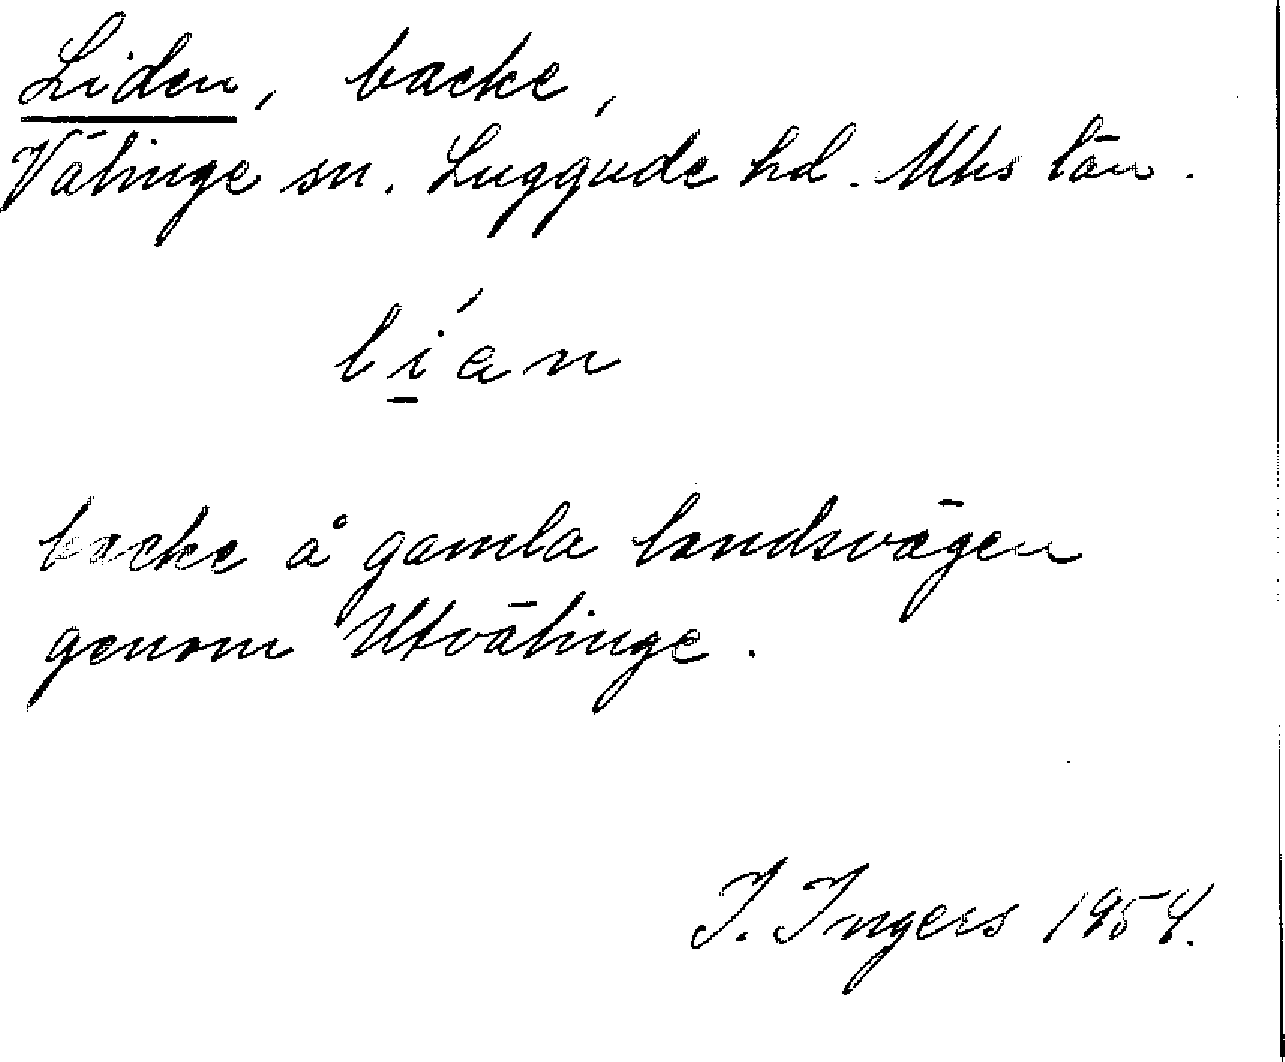 Liden, backe,
Välinge sn. Luggude hd. Mhs län.
li̱´an
backe å gamla landsvägen
genom Utvälinge.
I. Ingers 1954.